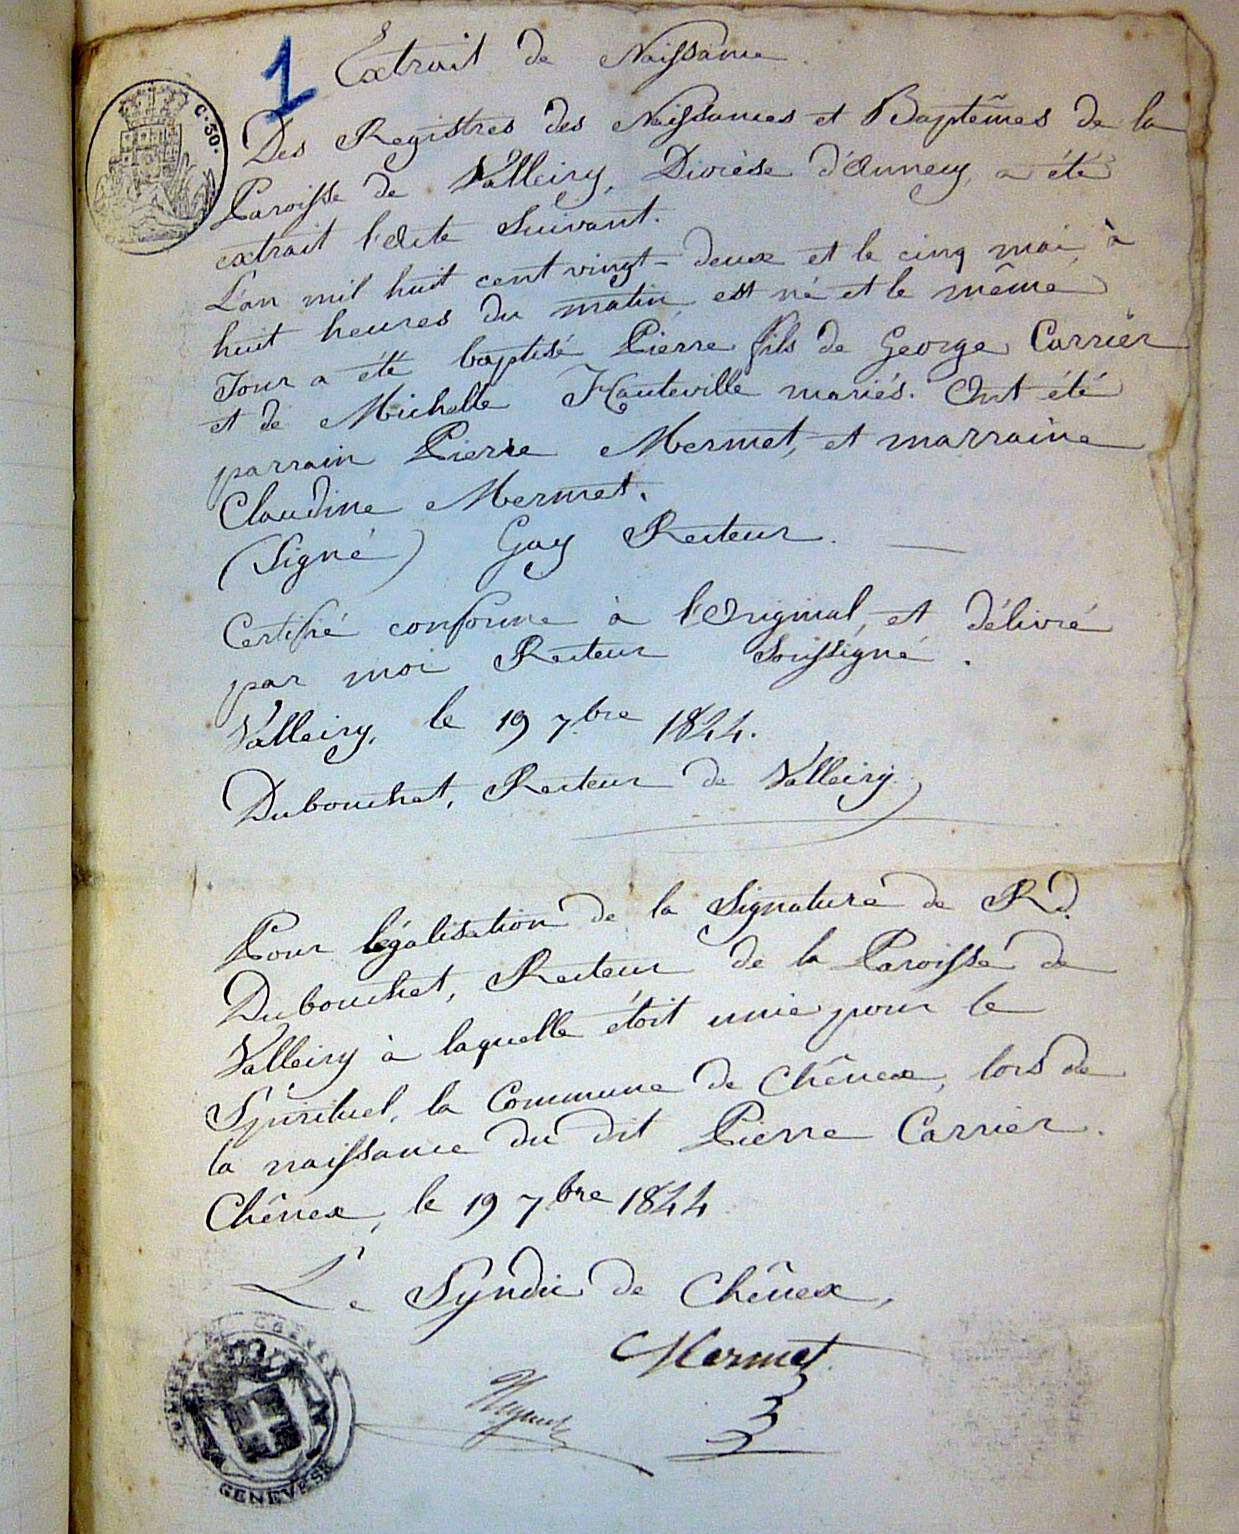 1
Extrait de Naissance.
C. 30.
Des Registres des Naissances et Baptêmes de la
Paroisse de Valleiry, Diocèse d'Annecy, a été
extrait l'Acte Suivant.
L'an mil huit cent vingt-deux et le cinq mai, à
huit heures du matin, est né et le même
Jour a été baptisé Pierre fils de George Carrier
et de Michelle Hauteville mariés. Ont été
parrain Pierre Mermet, et marraine
Claudine Mermet.
(Signé) Gay Recteur. —
Certifié conforme à l'Original, et délivré
par moi Recteur Soussigné.
Valleiry, le 19 7.bre 1844.
Dubouchet, Recteur de Valleiry.
Pour légalisation de la Signature de Rd.
Dubouchet, Recteur de la Paroisse de
Valleiry à laquelle étoit unie pour le
Spirituel, la Commune de Chênex, lors de
la naissance du dit Pierre Carrier.
Chênex, le 19 7bre 1844
Le Syndic de Chênex,
Mermet
GENEVESE